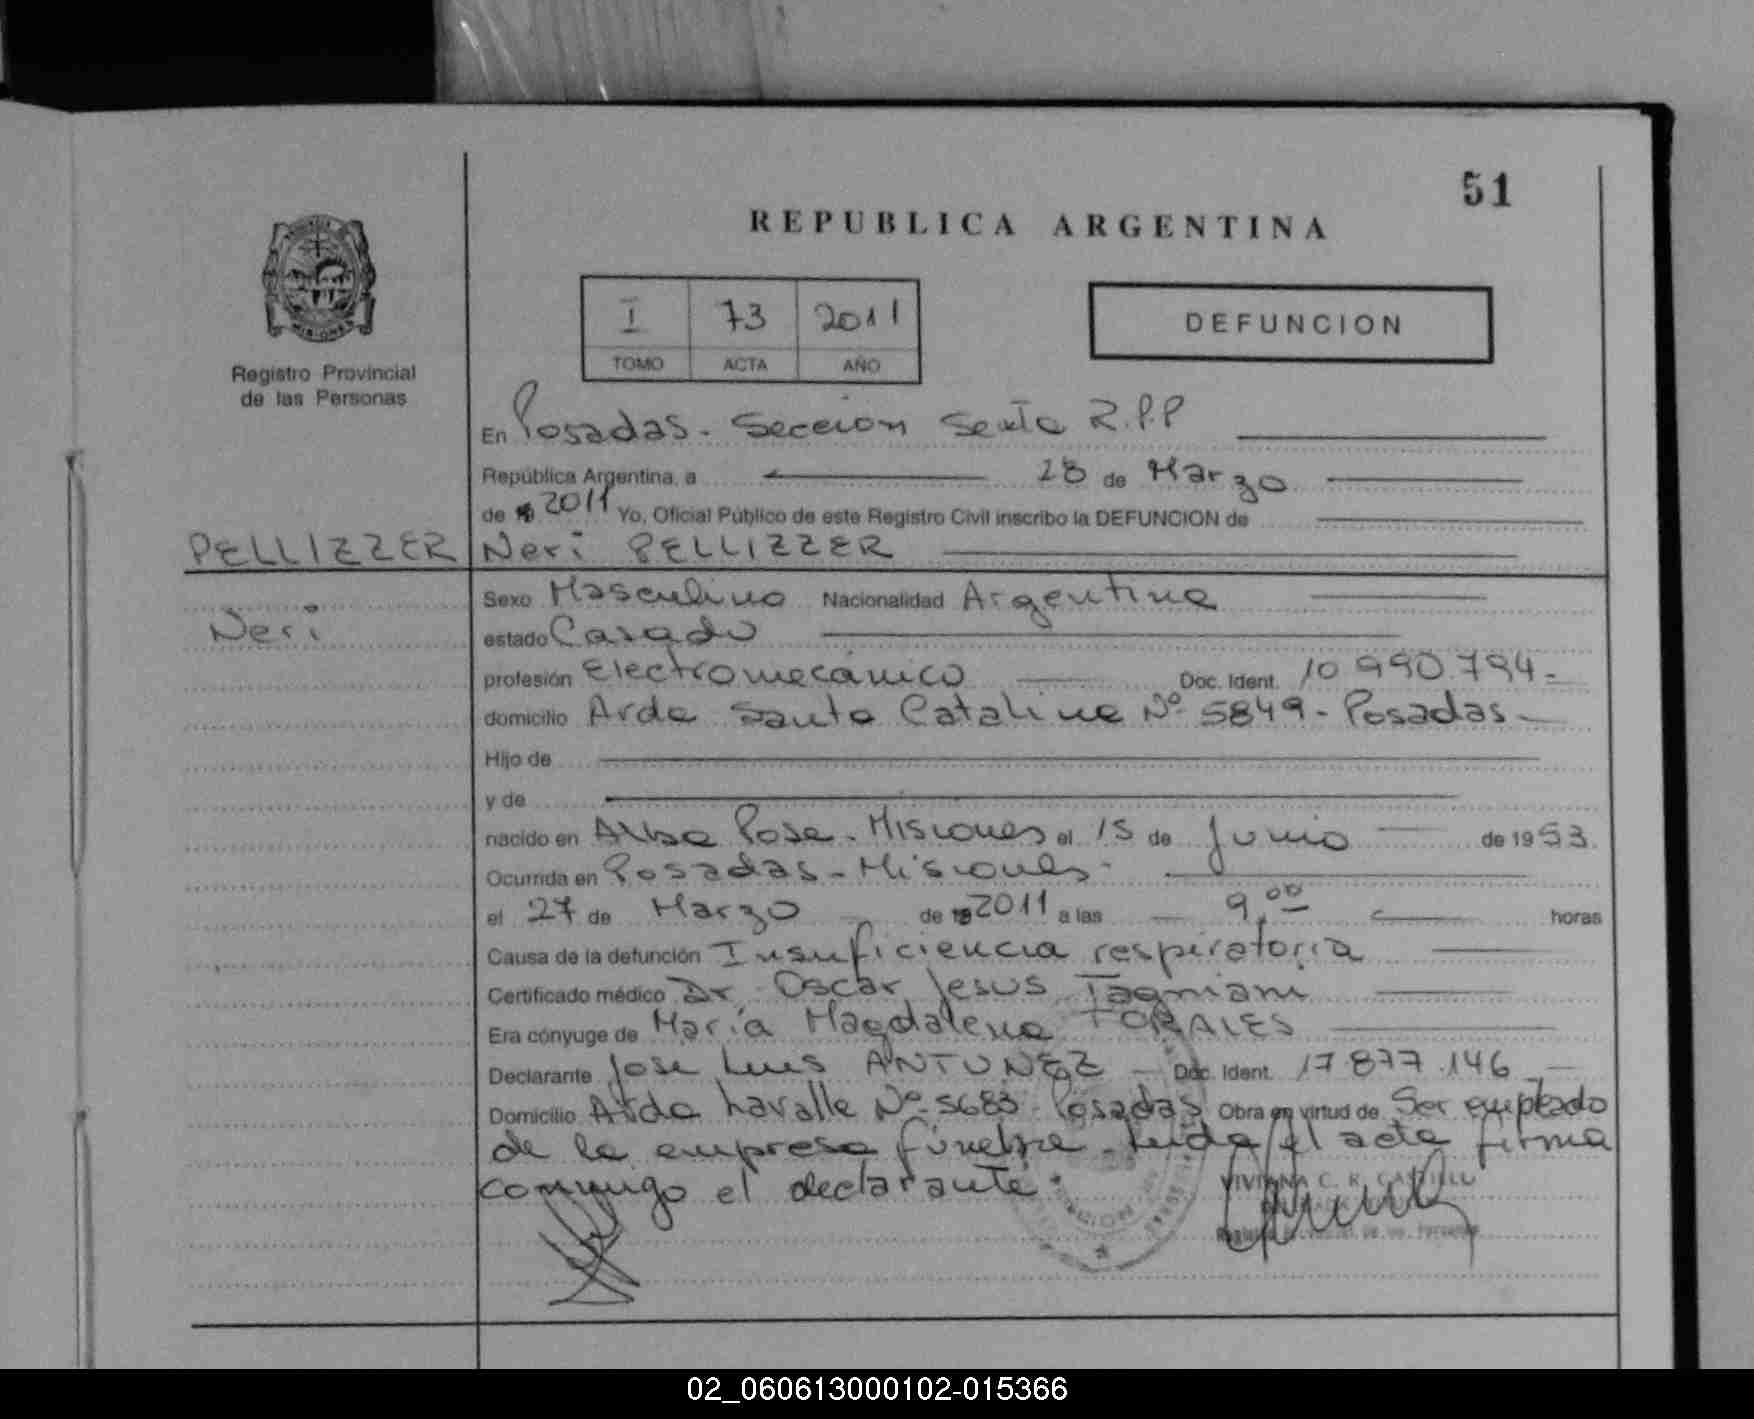 51
REPUBLICA ARGENTINA
I 73 2011
TOMO ACTA AÑO
DEFUNCION
MISIONES
Registro Provincial
de las Personas
En Posadas - Seccion Sexta R.P.P
República Argentina, a 28 de Marzo
de 2011 Yo, Oficial Público de este Registro Civil inscribo la DEFUNCION de
PELLIZZER Neri PELLIZZER
Neri
Sexo Masculino Nacionalidad Argentina
estado Casado
profesión Electromecánico Doc. Ident. 10.990.794-
domicilio Avda Santa Catalina Nº 5849 - Posadas -
Hijo de
y de
nacido en Alba Pose - Misiones el 15 de Junio de 1953.
Ocurrida en Posadas - Misiones -
el 27 de Marzo de 2011 a las 9,00 horas
Causa de la defunción Insuficiencia respiratoria
Certificado médico Dr Oscar Jesus
Era cónyuge de María Magdalena TORALES
Declarante Jose Luis ANTUNEZ - Doc. Ident. 17.877.146
Domicilio Avda Lavalle Nº 5683 - Posadas Obra en virtud de Ser empleado
de la empresa fúnebre. Leida el acta firma
conmigo el declarante.
VIVIANA C. R. CASTILLO
02_060613000102-015366